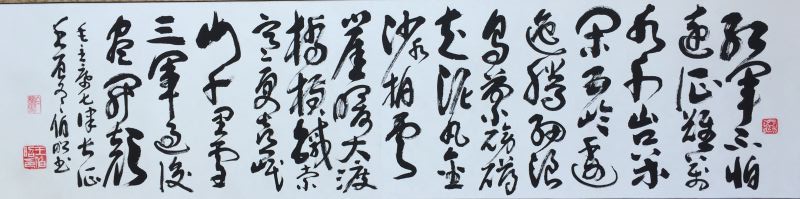 紅軍不怕
遠征難萬
水千山只等
閑五嶺逶
迤騰細浪
烏蒙磅礴
走泥丸金
沙水拍雲
崖暖大渡
橋橫鐵索
寒更喜岷
山千里雪
三軍過後
盡開顏
毛主席七律長征
壬寅冬伯書